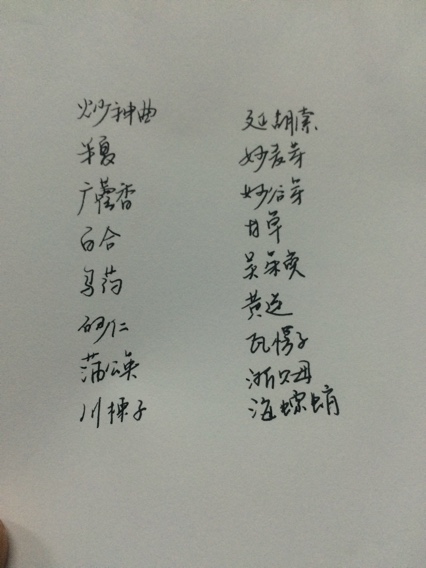 炒神曲
半夏
广藿香
百合
乌药
砂仁
蒲公英
川楝子
延胡索
炒麦芽
炒谷芽
甘草
吴茱萸
黄连
瓦愣子
浙贝母
海螵蛸